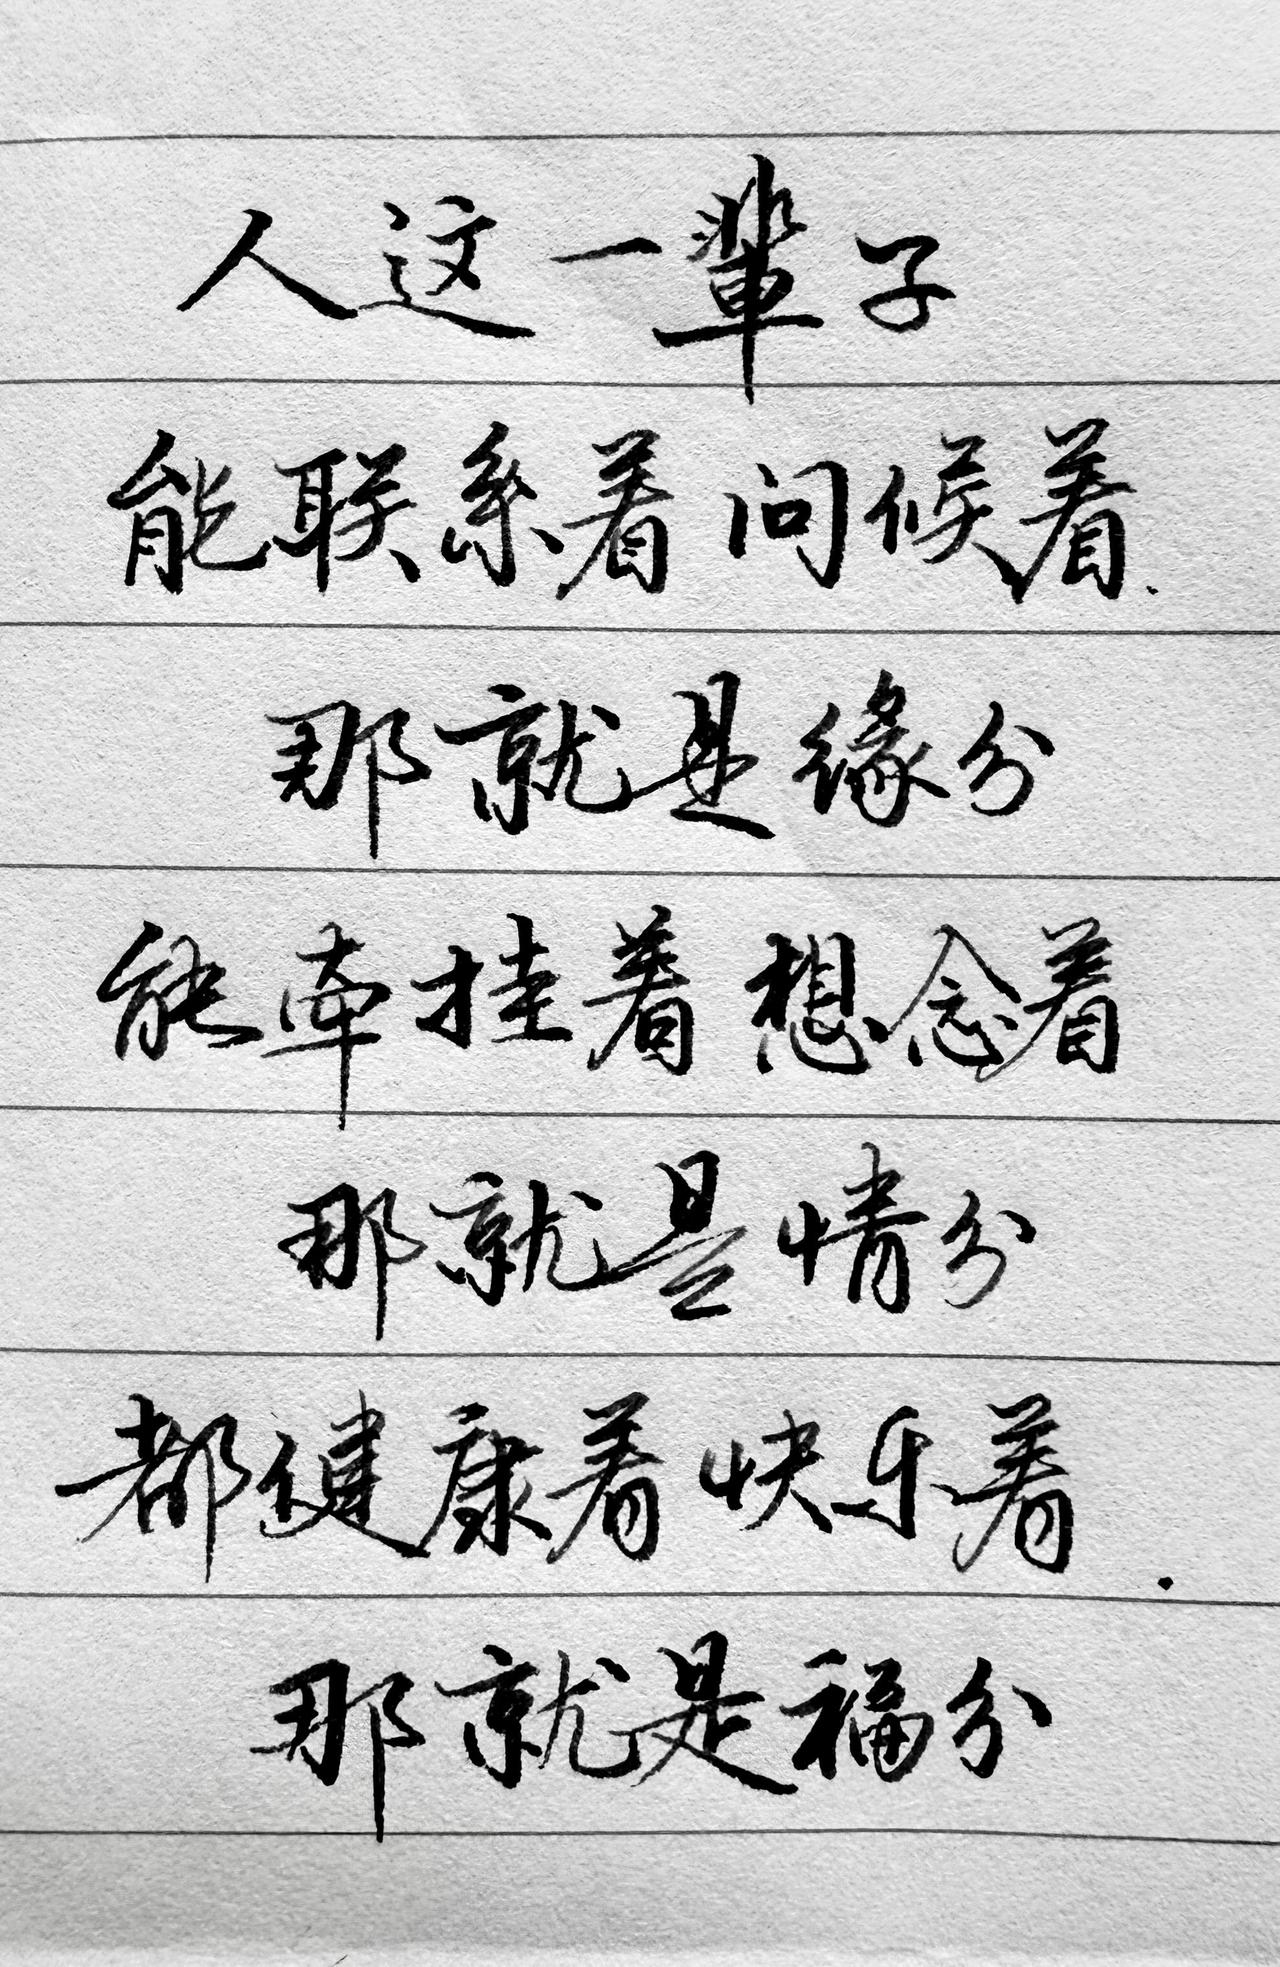 人这一輩子
能联系着问候着.
那就是缘分
能牵挂着想念着
那就是情分
都健康着快乐着.
那就是福分